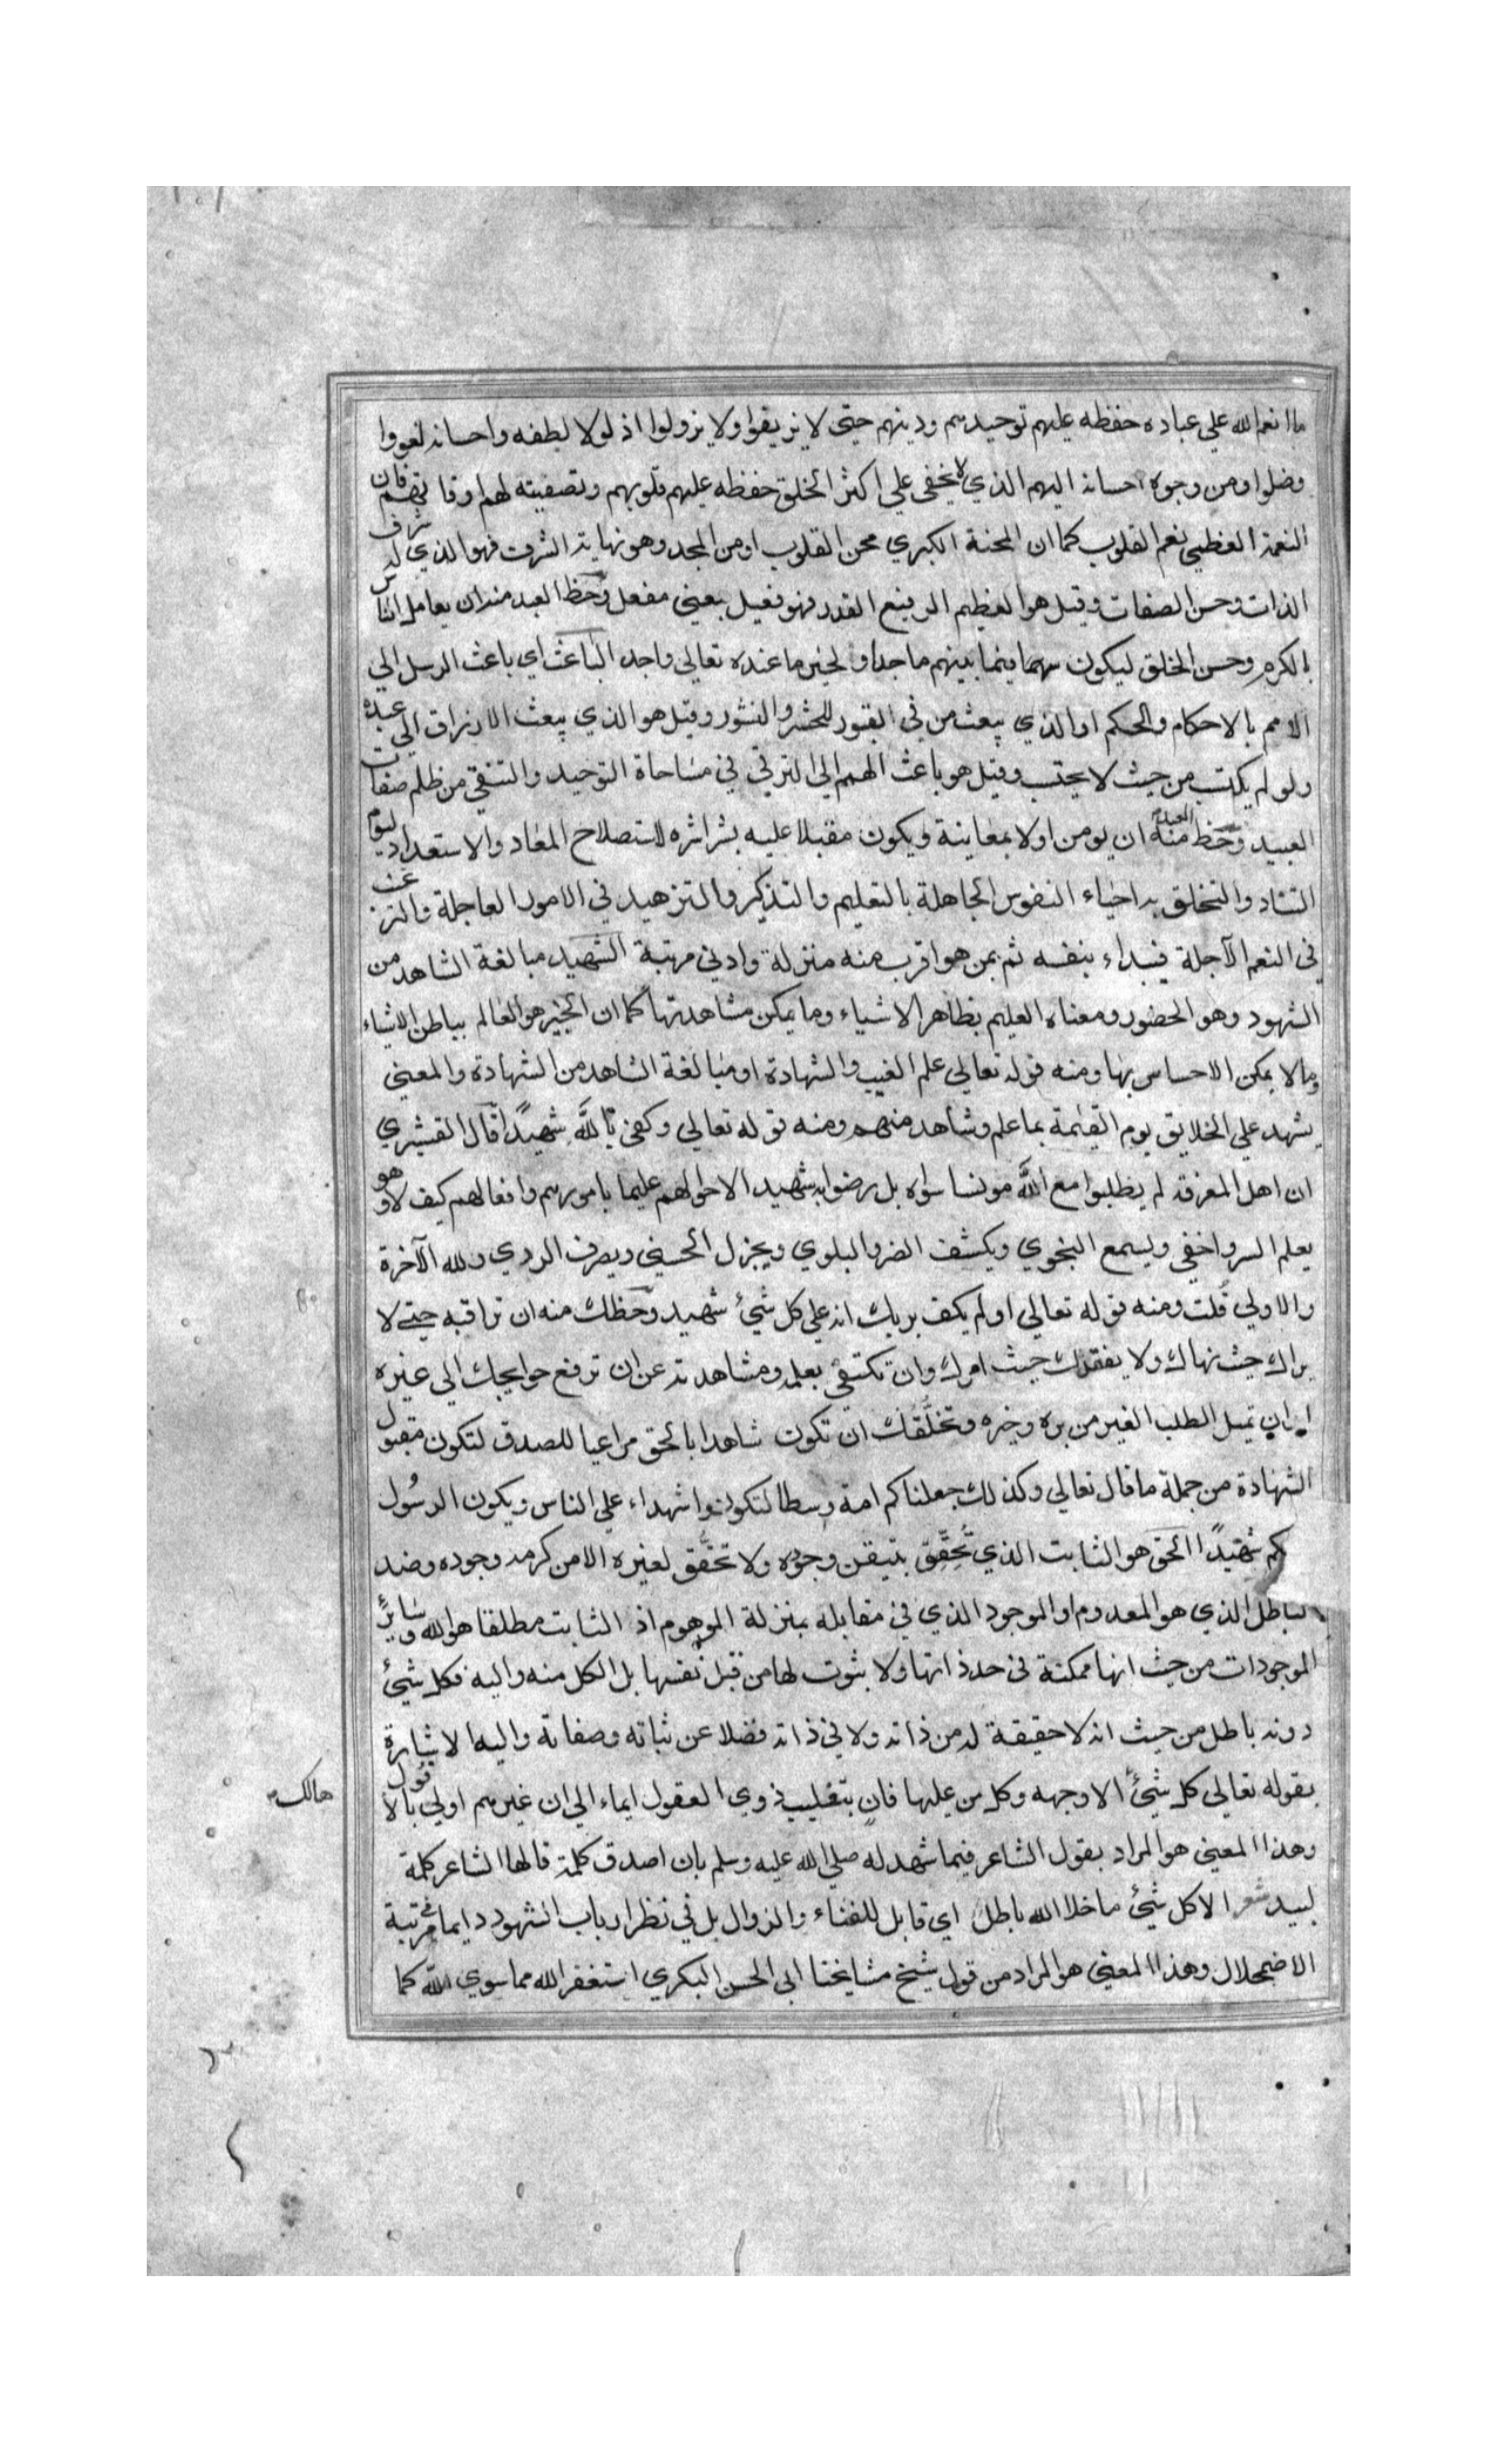 ما انعم الله علي عباده حفظه عليهم توحيدهم ودينهم حتي لا يزيغوا ولا يزولوا اذ لولا لطفه واحسانه لغووا
وضلوا ومن وجوه احسانه اليهم الذي لا يخفي علي اكثر الخلق حفظه عليهم قلوبهم وتصفيته لهم اوقاتهم فان
النعمة العظمي نعم القلوب كما ان المحنة الكبري محن القلوب او من المجد وهو نهاية الشرف فهو الذي له شرف
الذات وحسن الصفات وقيل هو العظيم الرفيع القدر فهو فعيل بمعني مفعل وحظ العبد منه ان يعامل الناس
بالكرم وحسن الخلق ليكون سهما فيما بينهم ماجدا ولخير ما عنده تعالي واجد الباعث اي باعث الرسل الي
الامم بالاحكام والحكم او الذي يبعث من في القبور للحشر والنشور وقيل هو الذي يبعث الارزاق الي عبده
ولو لم يكتسب من حيث لا يحتسب وقيل هو باعث الهمم الي الترقي في مساحاة التوحيد والتنقي من ظلم صفات
العبيد وحظ العبد منه ان يومن اولا بمعاينة ويكون مقبلا عليه بشراشره لاستصلاح المعاد والاستعداد ليوم
التناد والتخلق به احياء النفوس الجاهلة بالتعليم والتذكير والتزهيد في الامور العاجلة والترغيب
في النعم الآجلة فيبداء بنفسه ثم بمن هو اقرب منه منزلة وادني مرتبة الشهيد مبالغة الشاهد من
الشهود وهو الحضور ومعناه العليم بظاهر الاشياء وما يمكن مشاهدتها كما ان الخبير هو العالم بباطن الاشياء
وما لا يمكن الاحساس بها ومنه قوله تعالي علم الغيب والشهادة او مبالغة الشاهد من الشهادة والمعني
يشهد علي الخلايق يوم القيمة بما علم وشاهد منهم ومنه قوله تعالي وكفي بالله شهيدًا قال القشيري
ان اهل المعرفة لم يطلبوا مع الله مونسا سواه بل رضوا به شهيدا لاحوالهم عليما بامورهم وافعالهم كيف لا وهو
يعلم السر واخفي ويسمع النجوي ويكشف الضر والبلوي ويجزل الحسني ويصرف الردي ولله الآخرة
والاولي قلت ومنه قوله تعالي اولم يكف بربك انه علي كل شيئ شهيد وحظك منه ان تراقبه حتي لا
يراك حيث نهاك ولا يفقدك حيث امرك وان تكتفي بعلمه ومشاهدته عن ان ترفع حوايجك الي غيره
او ان تميل لطلب الغير من بره وخيره وتخلُّقك ان تكون شاهدا بالحق مراعيا للصدق لتكون مقبول
الشهادة من جملة ما قال تعالي وكذلك جعلناكم امة وسطا لتكونوا شهداء علي الناس ويكون الرسُول
كم شهيدًا الحق هو الثابت الذي تُحقِّق بتيقن وجوده ولا تحقُّق لغيره الا من كرمه وجوده وضد
الباطل الذي هو المعدوم او الموجود الذي في مقابله بمنزلة الموهوم اذ الثابت مطلقا هو الله وسايرُ
الموجودات من حيث انها ممكنة في حد ذاتها ولا ثبوت لها من قبل نفسها بل الكل منه واليه فكل شيئ
دونه باطل من حيث انه لا حقيقة له من ذاته ولا في ذاته فضلا عن ثباته وصفاته واليه الاشارة
بقوله تعالي كل شيئ الا وجهه وكل من عليها فانٍ بتغليب ذوي العقول ايماء الي ان غيرهم اولي بالافول
هالك
وهذا المعني هو المراد بقول الشاعر فيما شهد له صلي الله عليه وسلم بان اصدق كلمة قالها الشاعر كلمة
لبيد شعر الا كل شيئ ما خلا الله باطل اي قابل للفناء والزوال بل في نظر ارباب الشهود دايما في مرتبة
الاضمحلال وهذا المعني هو المراد من قول شيخ مشايخنا ابي الحسن البكري استغفر الله مما سوي الله كما